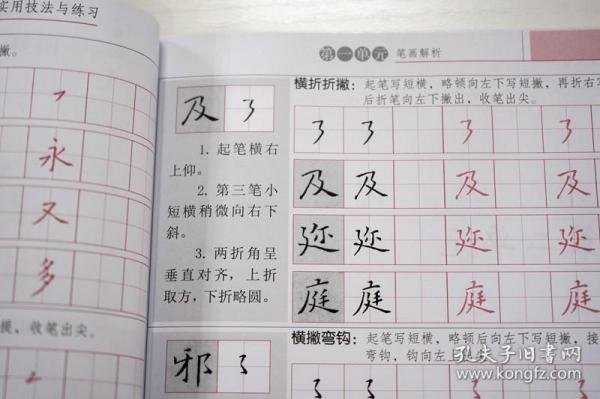 实用技法与练习
撇。
永
又
多
提，收笔出尖。
第一单元 笔画解析
及
1. 起笔横右
上仰。
2. 第三笔小
短横稍微向右下
斜。
3. 两折角呈
垂直对齐，上折
取方，下折略圆。
邪
横折折撇：起笔写短横，略顿向左下写短撇，再折右写
后折笔向左下撇出，收笔出尖。
及 及 及 及
延 延 延 延
庭 庭 庭 庭
横撇弯钩：起笔写短横，略顿后向左下写短撇，接
弯钩，钩向左上
孔夫子旧书网
www.kongfz.com